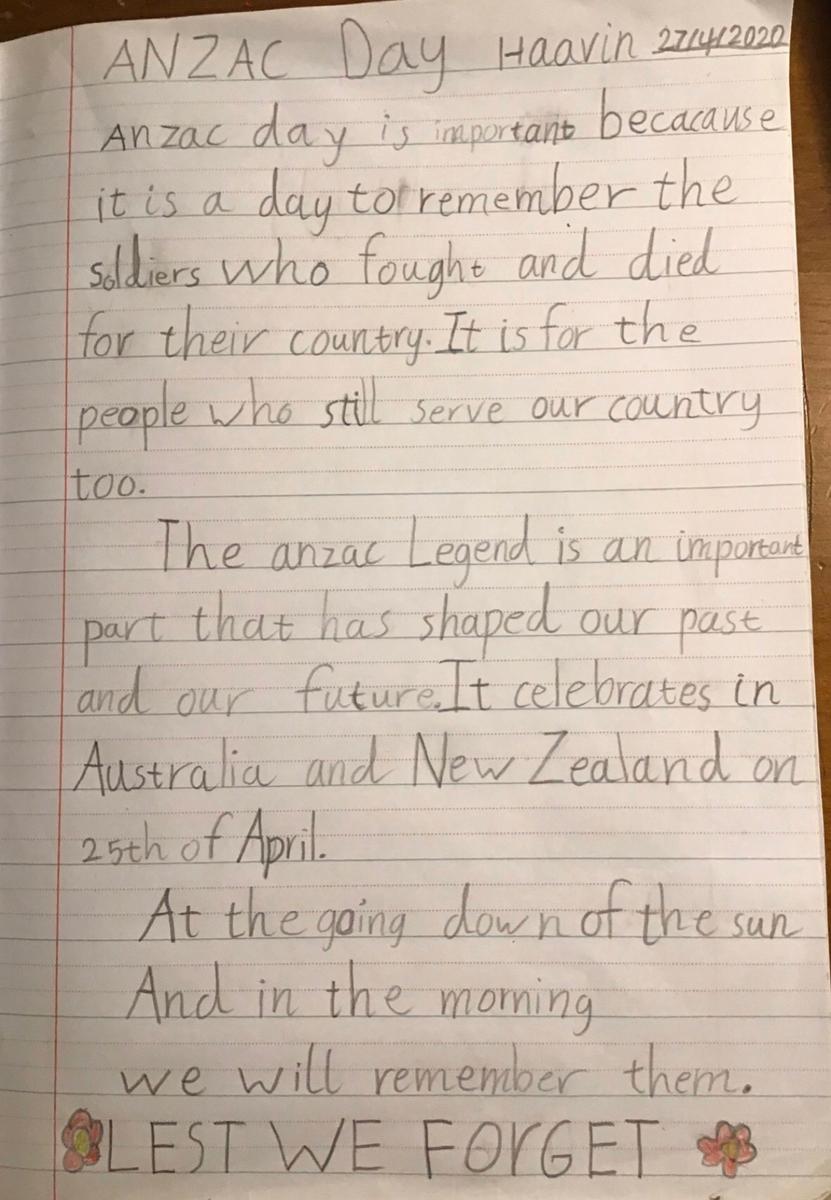 ANZAC Day Haavin 27/4/2020
Anzac day is important becacause
it is a day to remember the
soldiers who fought and died
for their country. It is for the
people who still serve our country
too.
The anzac Legend is an important
part that has shaped our past
and our future. It celebrates in
Australia and New Zealand on
25th of April.
At the going down of the sun
And in the morning
we will remember them.
LEST WE FORGET